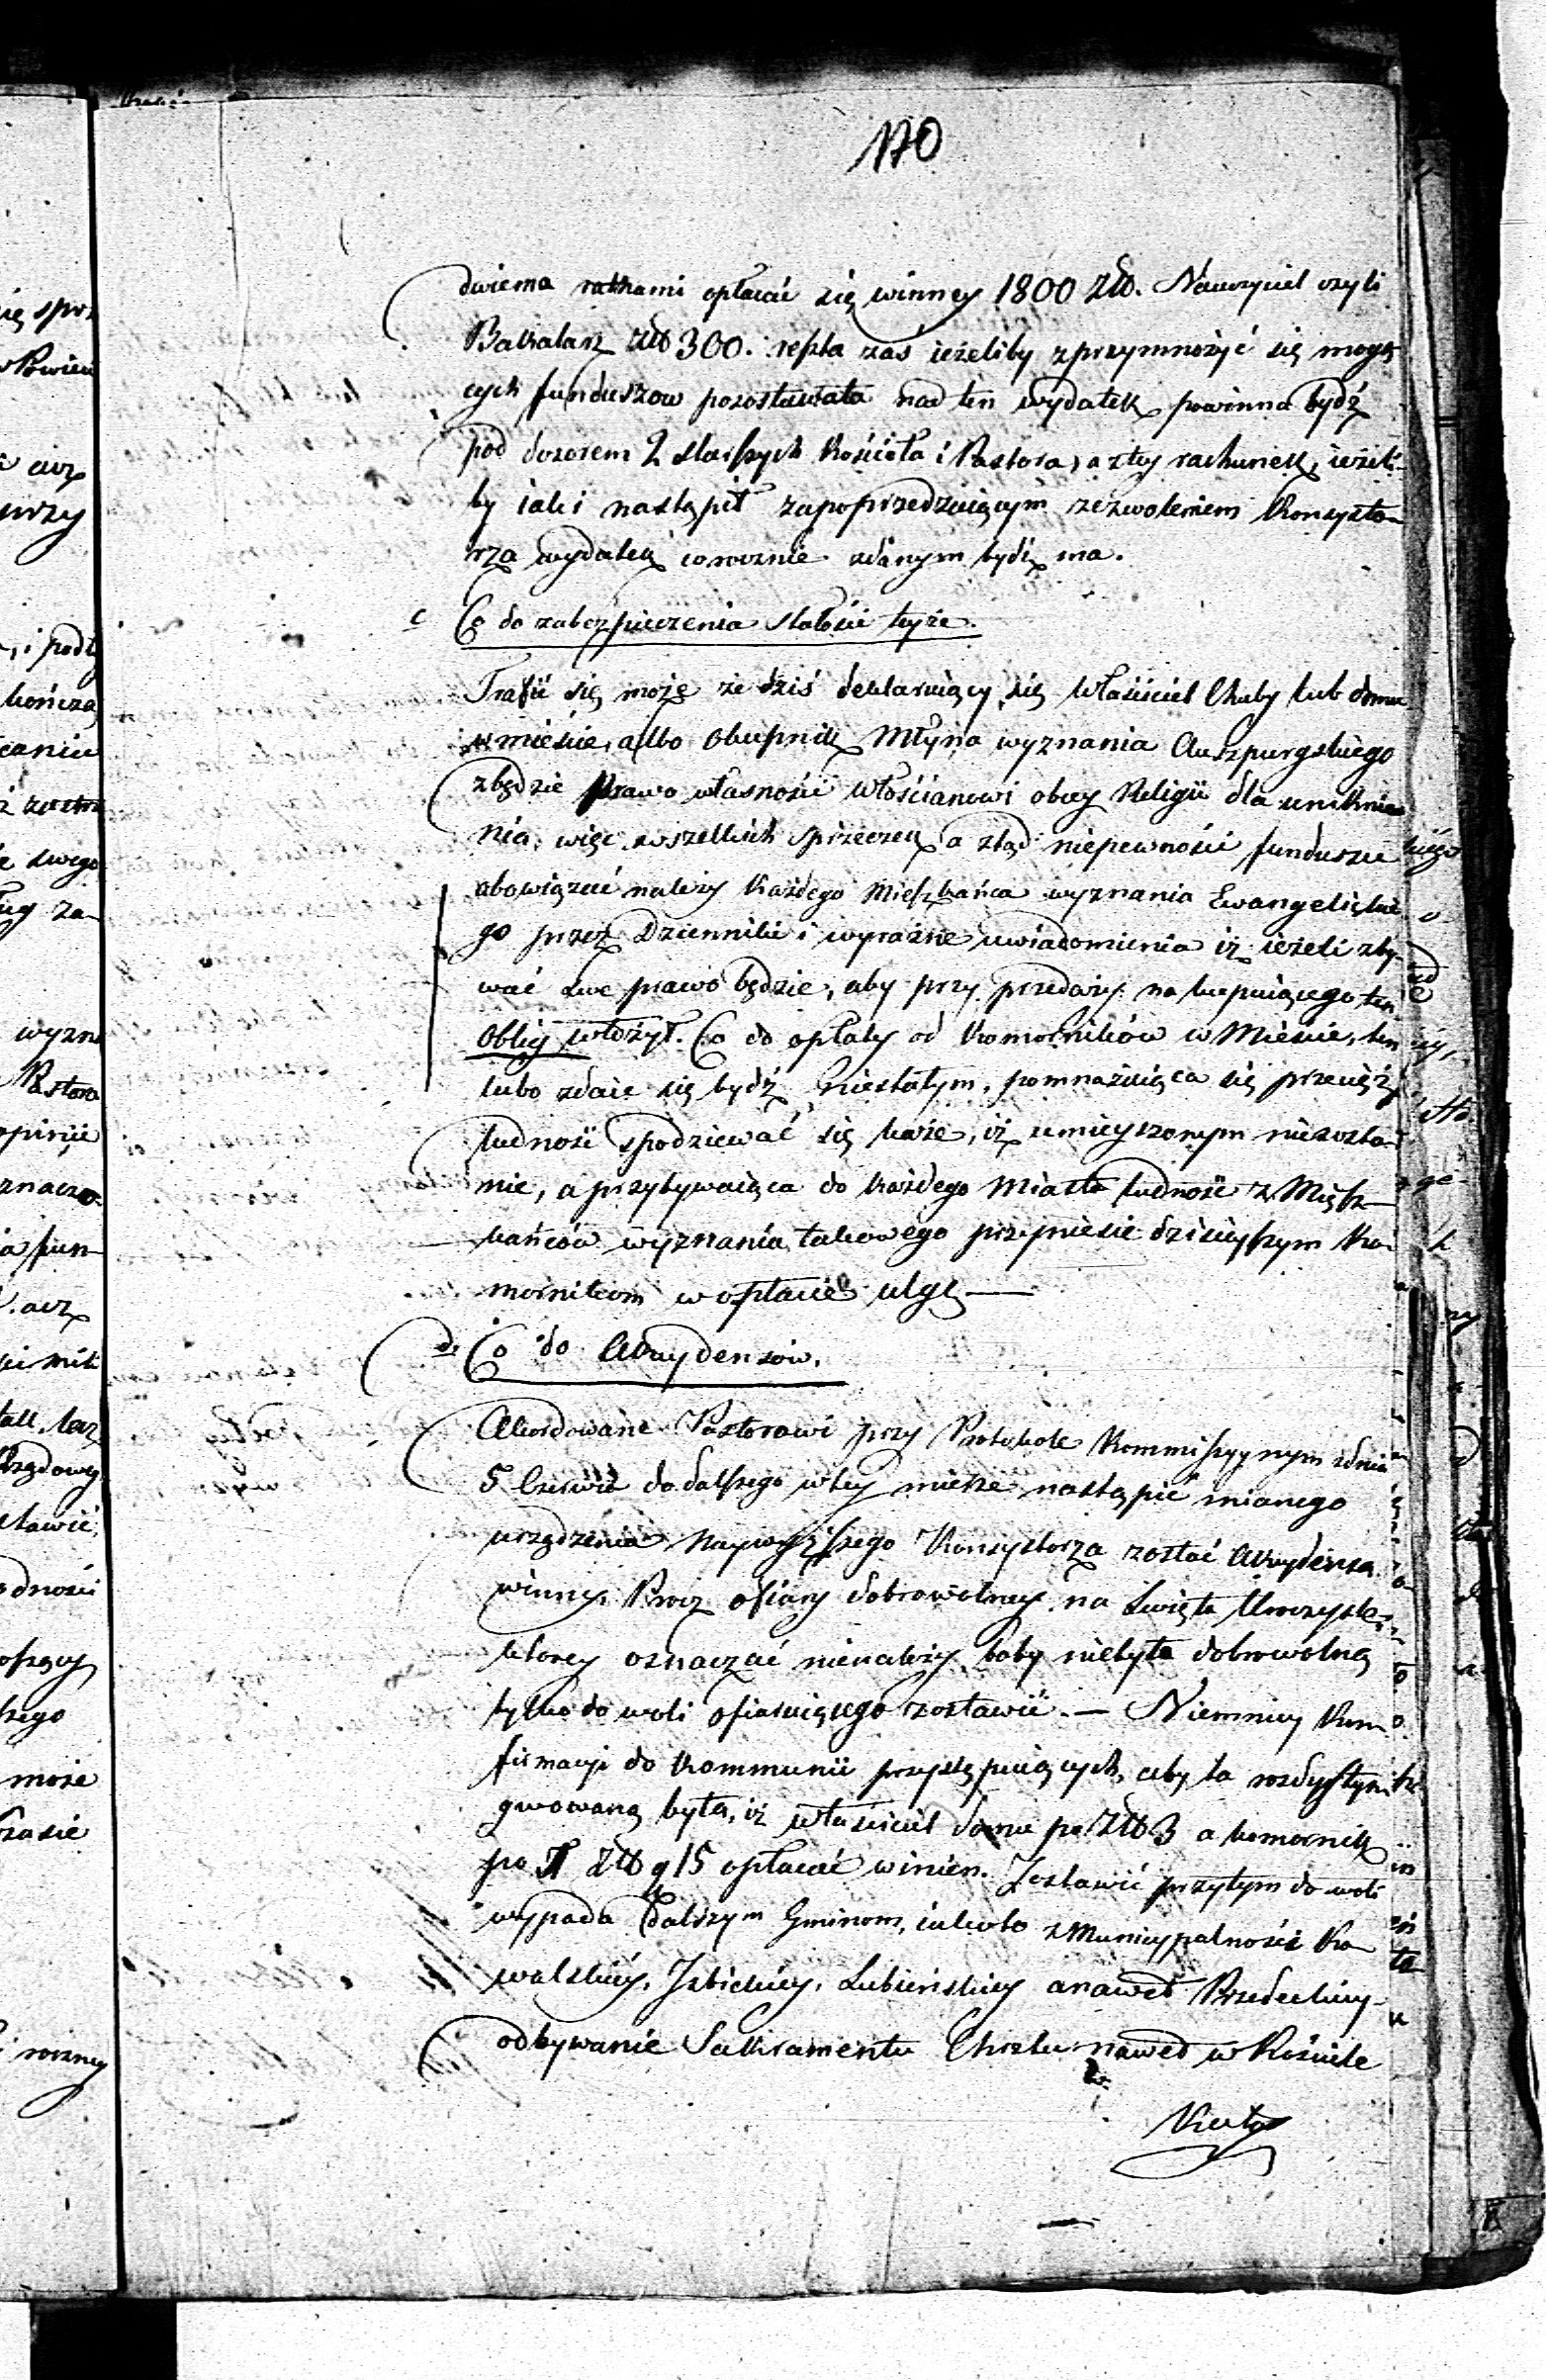 170
dwiema ratkami opłacać się winney 1800 Złt. Nauczyciel czyli
Bakałarz Złt 300. reszta zaś ieżeliby zprzymnożyć się mogą
cych funduszow pozostawała nad ten wydatek powinna bydź
pod dozorem 2 starszych Kościoła i Pastora, a ztey rachunek, ieżeli
by iaki nastąpił zapoprzedzaiącym zezwoleniem Konsysto
rza wydatek corocznie zdanym bydź ma.
c Co do zabezpieczenia stałości teyże.
Trafić się może że dziś deklaruiący się właściciel Chuby lub domu
w mieście, albo Okupnik Młyna wyznania Auszpurgskiego
zbędzie Prawo własności włościanowi obcey Religii dla uniknie
nia, więc wszelkich sprzeczek a ztąd niepewności funduszu
obowiązać należy każdego Mieszkańca wyznania Ewangelickie
go przez Dzienniki i wyraźne uwiadomienia iż ieżeli zby-
wać swe prawo będzie, aby przy przedaży na kupuiącego ten
Oblig włożył. Co do opłaty od Komorników w Mieście, ten
lubo zdaie się bydź niestałym, pomnażaiąca się przecięż
ludność spodziewać się każe, iż umieyszonym niezosta-
nie, a przybywaiąca do każdego Miasta ludność z Miesz-
kańców wyznania takowego przyniesie dzisieyszym Ko-
mornikom w opłacie ulgę —
d. Co do Akcydensów.
Akordowane Pastorowi przy Protokole Kommissyynym zdnia
5 Czerwca do dalszego w tey mierze nastąpić mianego
urządzenia Naywyższego Konsystorza zostać Akcydensa
winny, Prócz ofiary dobrowolney na Święta Uroczyste,
ktorey oznaczać nienależy boby niebyła dobrowolną
tylko do woli ofiaruiącego zostawić. — Niemniey Kon
firmacyi do Kommunii przystępuiących, aby ta rozdystyn
gwowaną była, iż właściciel domu po Złt 3 a komornik
po 1 Złt g 15 opłacać winien. Zostawić przytym do woli
wypada dalszym Gminom, iakoto z Municypalności Ko
walskiey, Izbickiey, Lubieńskiey anawet Przedeckiey
odbywanie Sakramentu Chrztu nawet w Kościele